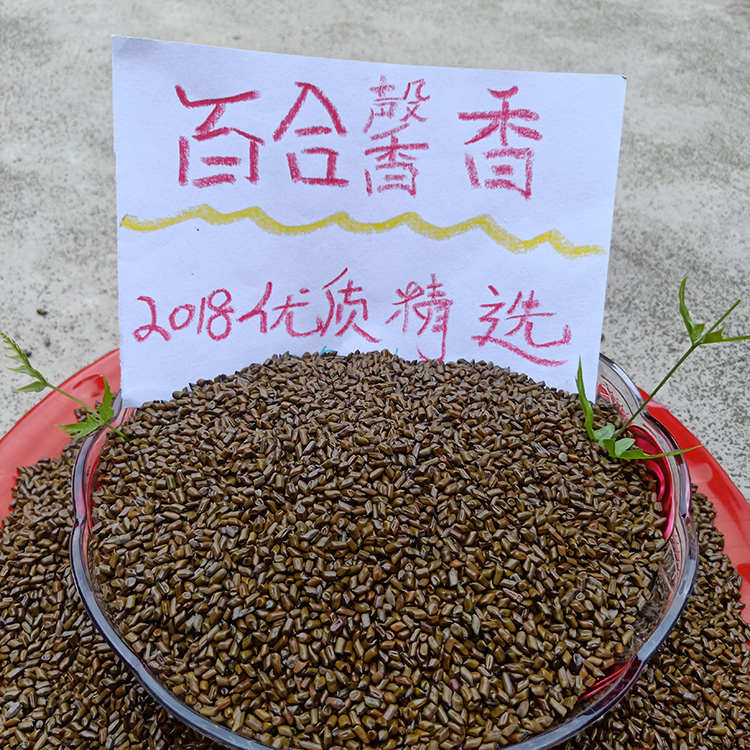 百合馨香
2018优质精选